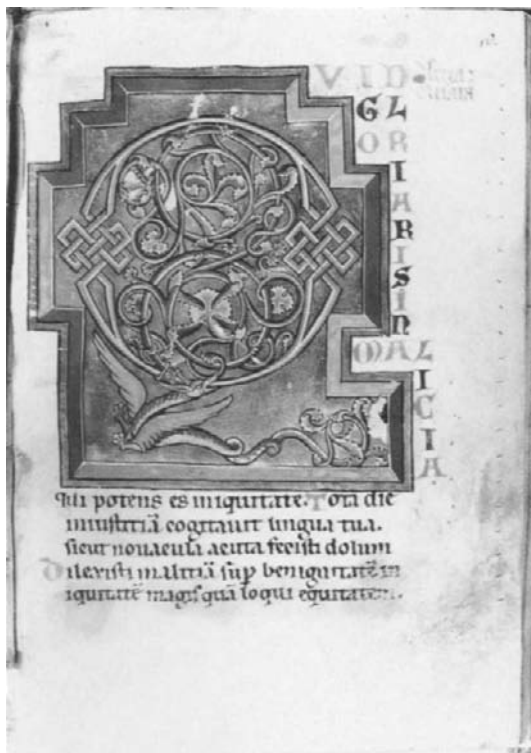 Q VID
GL
OR
I
A
R
I
S
I
N
MA L
I
C
I
A
Qui potens es iniquitate. Tota die
iniustitiā cogitauit lingua tua.
sicut nouacula acuta fecisti dolum
Dilexisti malitiā sup benignitatē in
iquitatē magis quā loqui equitatem.